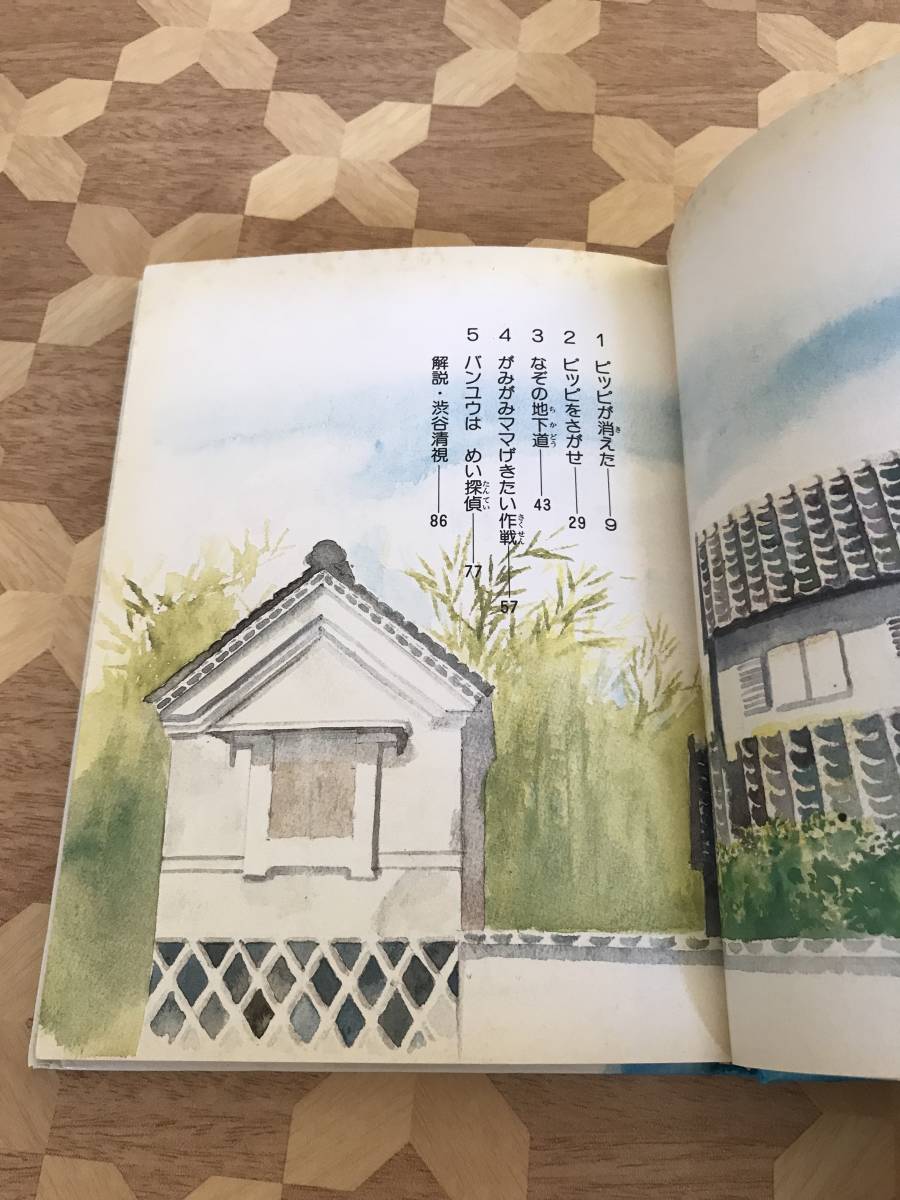 1 ピッピが消えた――9
き
2 ピッピをさがせ――29
3 なぞの地下道――43
ちかどう
4 がみがみママげきたい作戦――57
さくせん
5 バンユウは めい探偵――77
たんてい
解説・渋谷清視――86